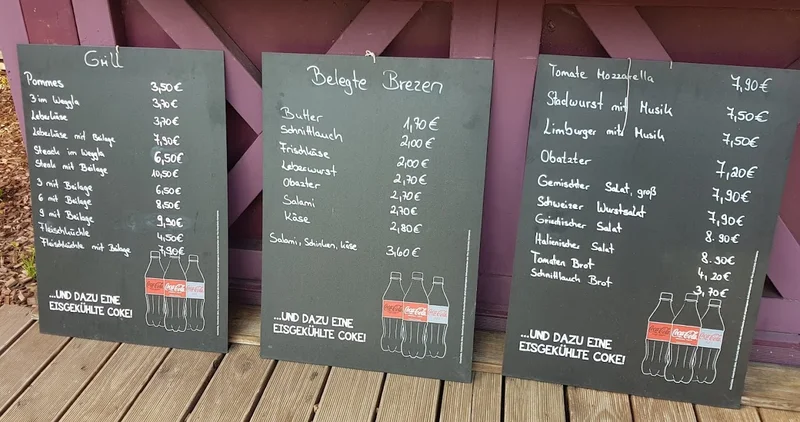 Grill
Pommes 3,50€
3 im Weggla 3,70€
Leberkäse 3,70€
Leberkäse mit Beilage 7,90€
Steak im Weggla 6,50€
Steak mit Beilage 10,50€
3 mit Beilage 6,50€
6 mit Beilage 8,50€
9 mit Beilage 9,90€
Fleischküchle 4,50€
Fleischküchle mit Beilage 7,90€
...UND DAZU EINE
EISGEKÜHLTE COKE!
Coca-Cola
Belegte Brezen
Butter 1,70€
Schnittlauch 2,00€
Frischkäse 2,00€
Leberwurst 2,70€
Obazter 2,70€
Salami 2,70€
Käse 2,80€
Salami, Schinken, Käse 3,60€
...UND DAZU EINE
EISGEKÜHLTE COKE!
Coca-Cola
Tomate Mozzarella 7,90€
Stadwurst mit Musik 7,50€
Limburger mit Musik 7,50€
Obatzter 7,20€
Gemischter Salat, groß 7,90€
Schweizer Wurstsalat 7,90€
Griechischer Salat 8.90€
Italienischer Salat 8.90€
Tomaten Brot 4,20€
Schnittlauch Brot 3,70€
...UND DAZU EINE
EISGEKÜHLTE COKE!
Coca-Cola